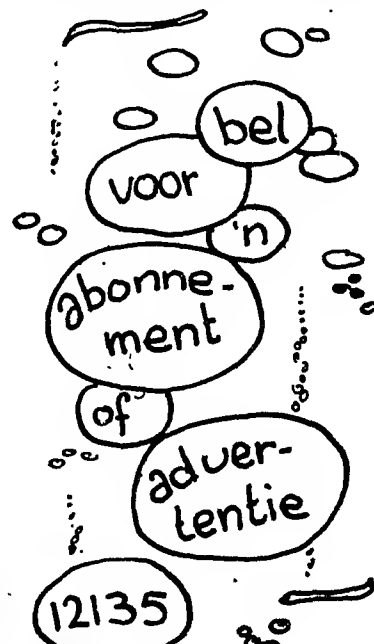 bel
voor
'n
abonne-
ment
of
adver-
tentie
12135